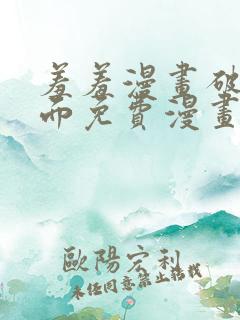 羞羞漫畫破
而免費漫畫
歐陽宏利
未任同意禁止搭載